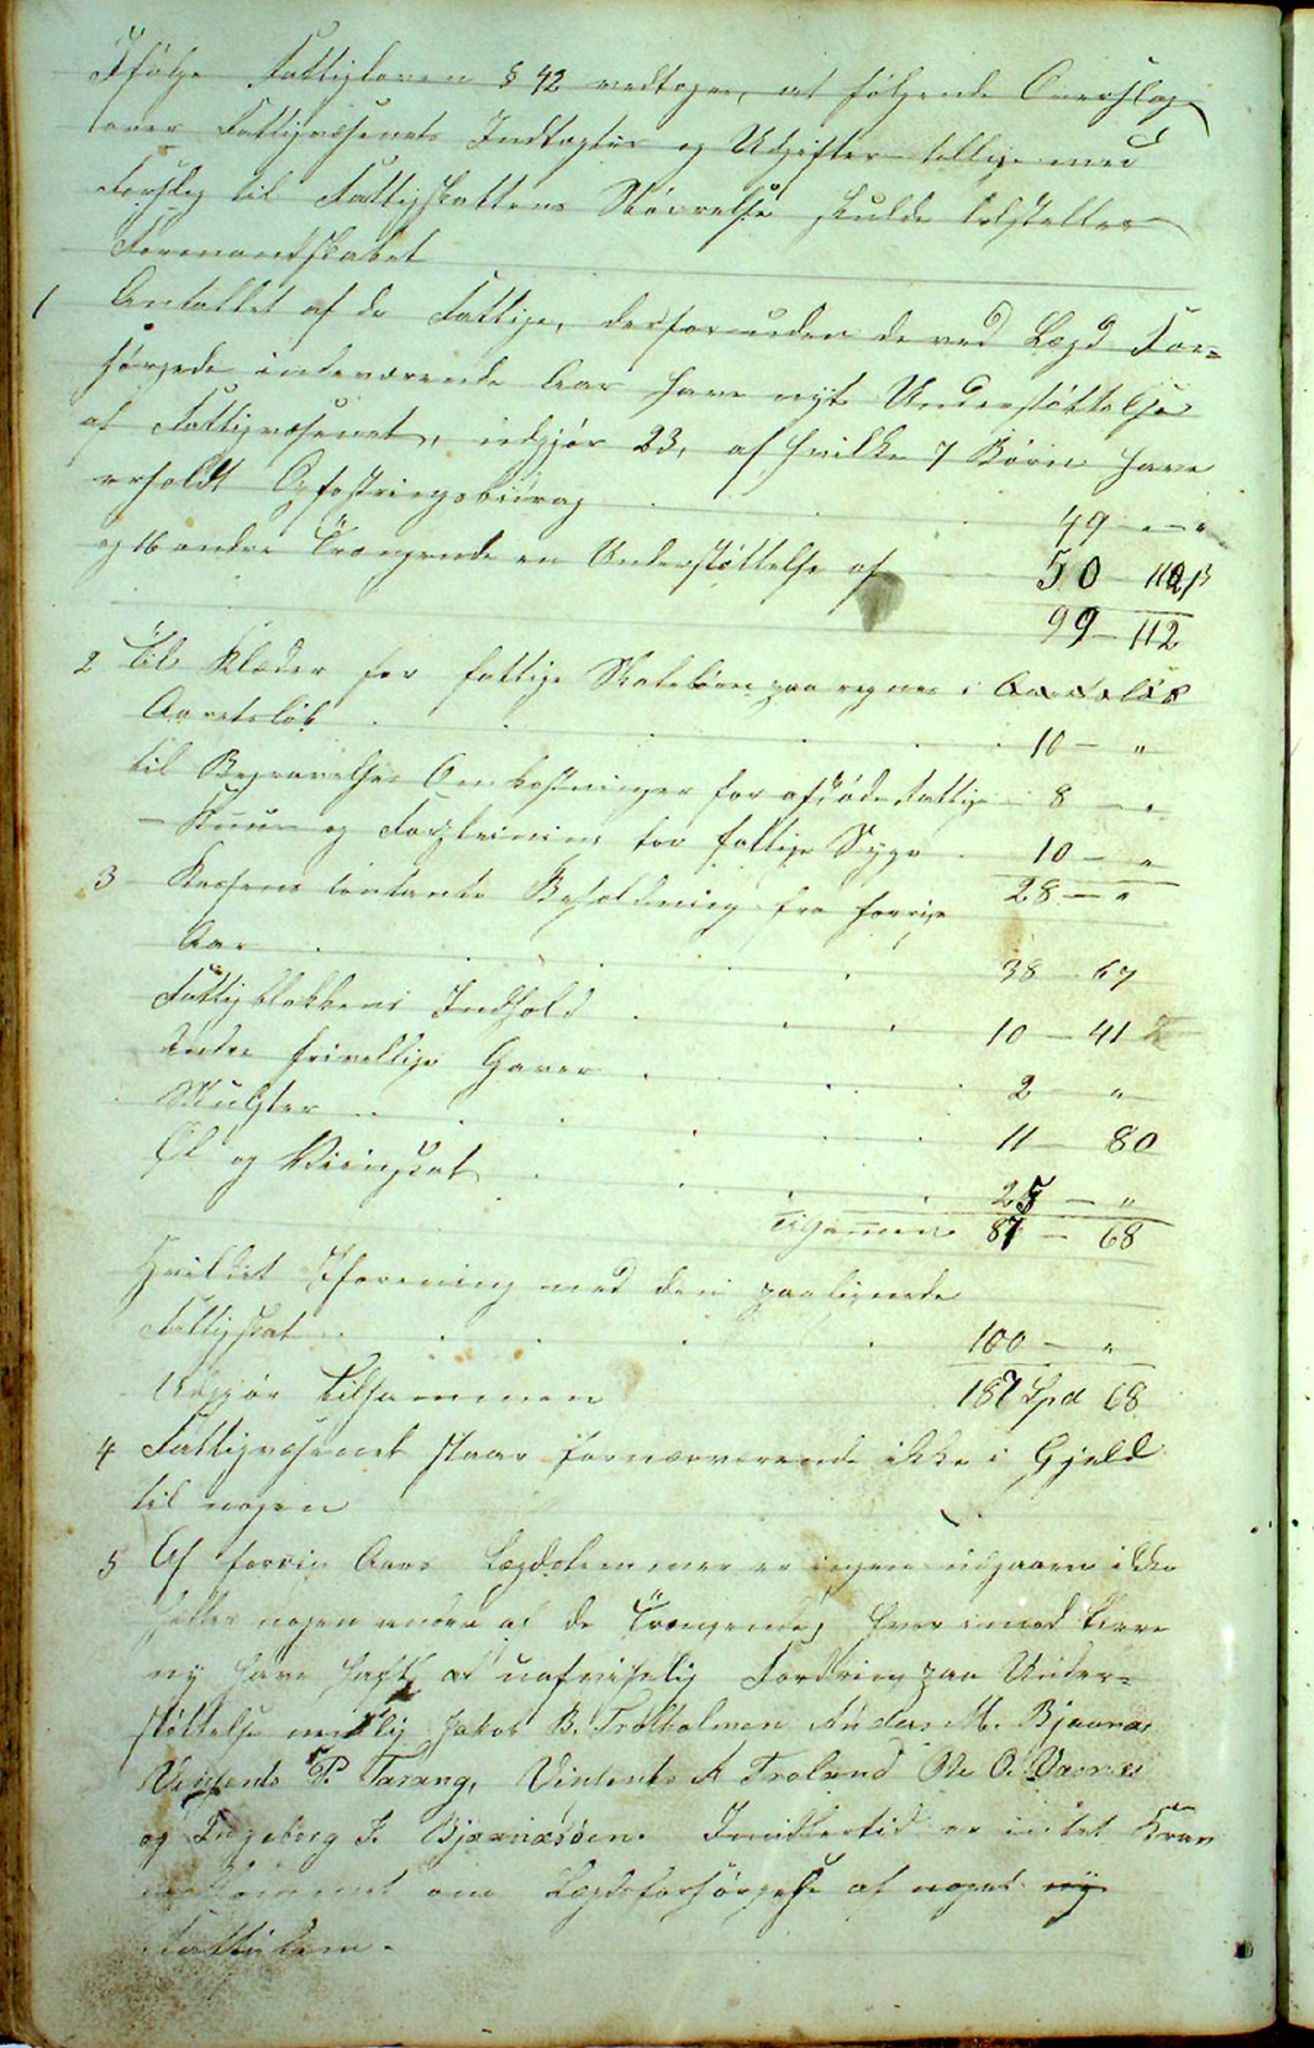 Ifølge Fattigloven § 42 vedtoges, at følgende Overslag
over Fattigvæsenets Indtægter og Udgifter tillige med
Forslag til Fattigskattens Størrelse skulde tilstilles
Formandskabet
1 Antallet af de Fattige, der foruden de ved Lægd For=
sørgede indeværende Aar have nydt Understøttelse
af Fattigvæsenet, udgjør 23, af hvilke 7 Børn have
erholdt Opfostringsbidrag . . . 49 - "
og 16 andre Trængende en Understøttelse af 50 - 112 β
99 - 112
2 Til Klæder for fattige Skolebørn paaregnes i
Aarets løb . . . . . 10 - "
til Begravelses Omkostninger for afdøde Fattige 8 - "
- Kuur og Forpleining for fattige Syge . 10 - "
28 - "
3 Kassens contante Beholdning fra forrige
Aar . . . . . 38 - 67
Fattigblokkens Indhold . . . 10 - 41
Andre frivillige Gaver . . . 2 - "
Mulkter . . . . . 11 - 80
Øl og . . . . 25 - "
Tilsammen 87 - 68
Hvilket i Forening med den paalignede
Fattigskat . . . . . 100 - "
Udgjør tilsammen 187 Spd 68
4 Fattigvæsenet staar for nærværende ikke i Gjeld
til nogen
5 Af forrige Aars Lægdslemmer er ingen udgaaen ikke
heller nogen anden af de Trængende, hvorimod flere
ny have havt uafviselig Fordring paa Under=
støttelse nemlig Jakob B. Trolholmen Anders M. Bjaanæs
Vinsents P. Tarang, Vinsents A Troland Ole O. Vaenæs
og Ingeborg J. Bjaanæsøen. Imidlertid er intet Krav
indkommet om Lægdsforsørgelse af noget ny
Fattiglem.